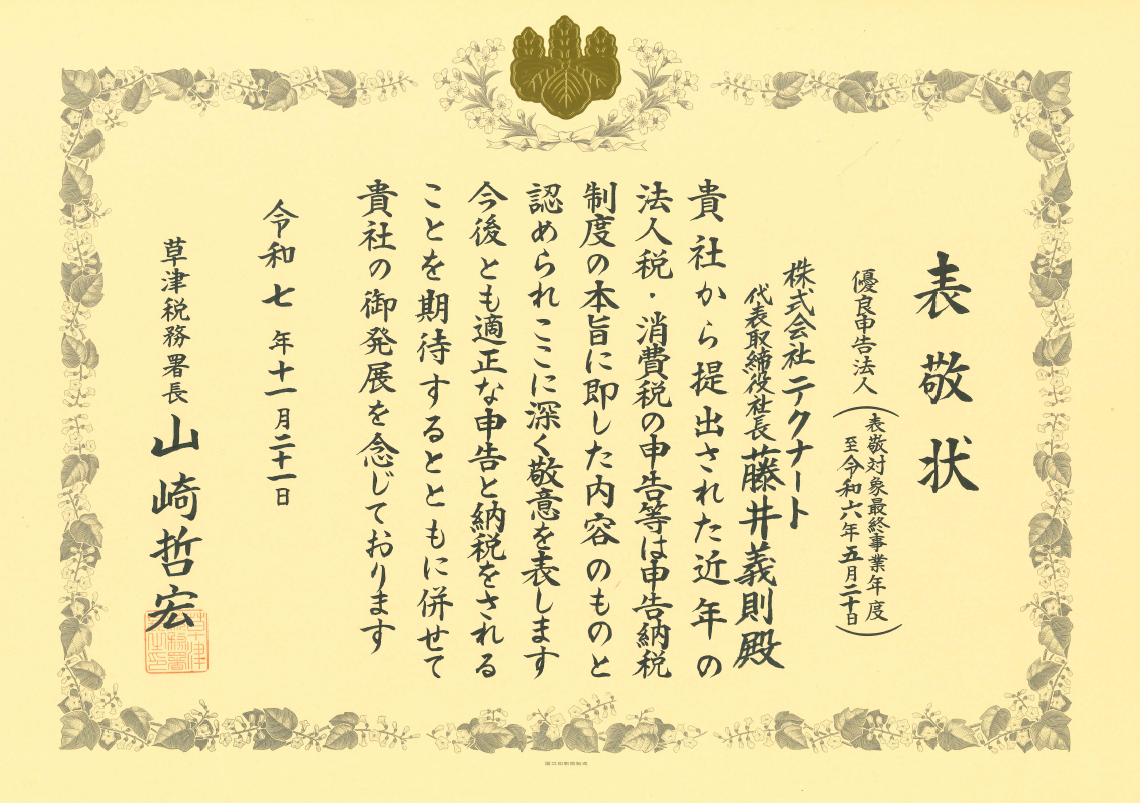 表敬状
優良申告法人
(表敬対象最終事業年度
至令和六年五月二十日)
株式会社テクナート
代表取締役社長 藤井義則殿
貴社から提出された近年の
法人税・消費税の申告等は申告納税
制度の本旨に即した内容のものと
認められここに深く敬意を表します
今後とも適正な申告と納税をされる
ことを期待するとともに併せて
貴社の御発展を念じております
令和七年十一月二十一日
草津税務署長 山崎哲宏
草津税務署長之印
国立印刷局製造